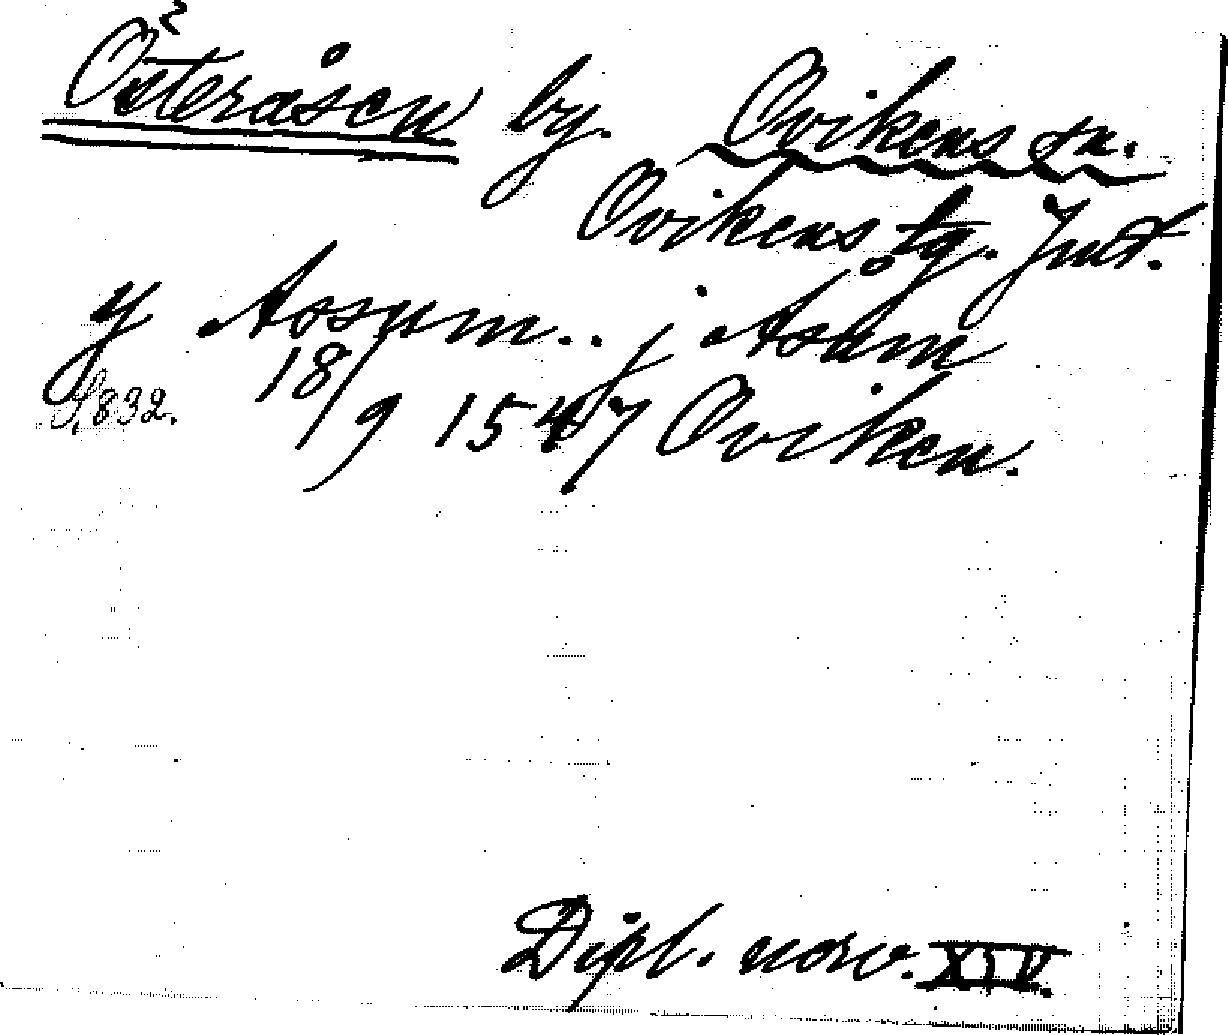 Österåsen by. Ovikens sn.
Ovikens tg. Jmt.
y Assum.. j Åsum
S. 832. 18/9 1547 Oviken.
Dipl. norv. XIV.